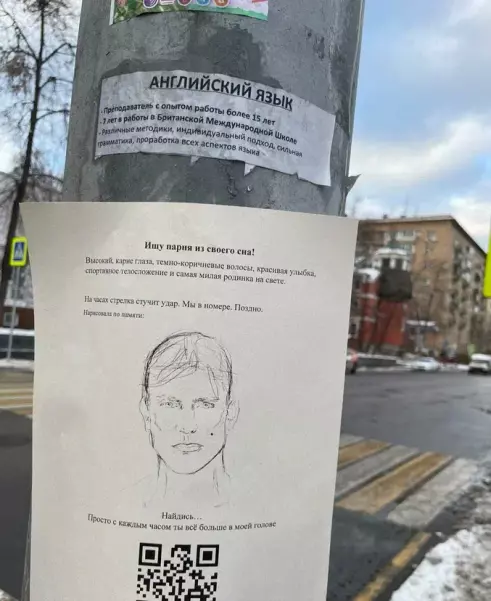 АНГЛИЙСКИЙ ЯЗЫК
- Преподаватель с опытом работы более 15 лет
- 7 лет работы в Британской Международной Школе
- Различные методики, индивидуальный подход, сильная
грамматика, проработка всех аспектов языка
Ищу парня из своего сна!
Высокий, карие глаза, темно-коричневые волосы, красивая улыбка,
спортивное телосложение и самая милая родинка на свете.
На часах стрелка стучит удар. Мы в номере. Поздно.
Нарисовала по памяти:
Найдись…
Просто с каждым часом ты всё больше в моей голове